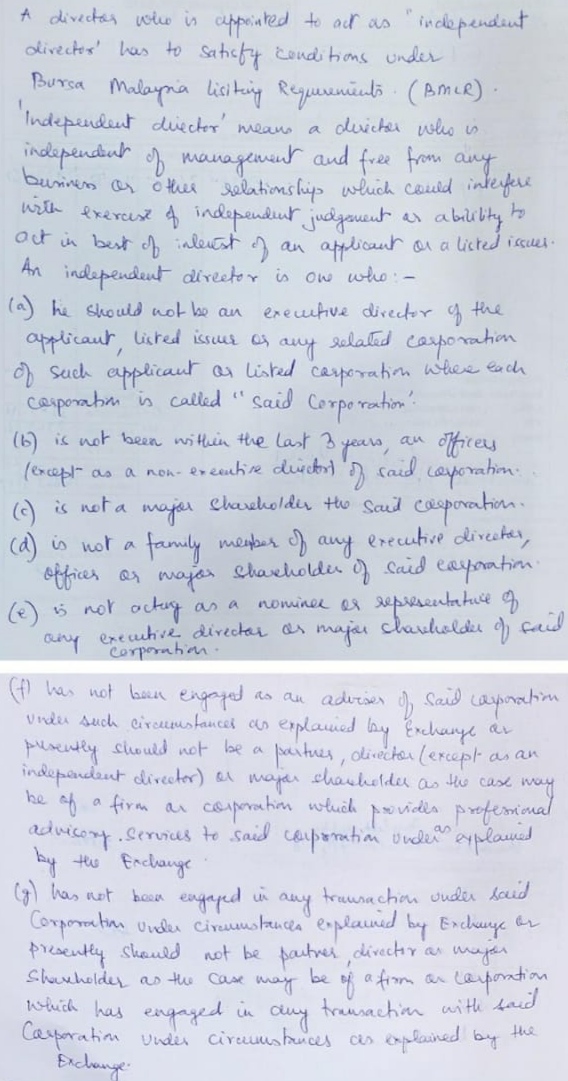 A director who is appointed to act as "independent
director' has to satisfy conditions under
Bursa Malaysia Lisiting Requirements. (BMLR).
'Independent director' means a director who is
independent of management and free from any
business or other relationship which could interfere
with exercise of independent judgement or ability to
act in best of interest of an applicant or a listed issuer.
An independent director is one who:-
(a) he should not be an executive director of the
applicant, listed issuer or any related corporation
of such applicant or listed corporation where each
corporation is called "said Corporation'.
(b) is not been within the last 3 years, an officers
(except as a non-executive director) of said corporation.
(c) is not a major shareholder the said corporation.
(d) is not a family member of any executive director,
officer or major shareholder of said corporation.
(e) is not acting as a nominee or representative of
any executive director or major shareholder of said
corporation.
(f) has not been engaged as an adviser of said corporation
under such circumstances as explained by Exchange or
presently should not be a partner, director (except as an
independent director) or major shareholder as the case may
be of a firm or corporation which provides professional
advisory services to said corporation under as explained
by the Exchange.
(g) has not been engaged in any transaction under said
Corporation under circumstances explained by Exchange or
presently should not be partner, director or major
shareholder as the case may be of a firm or corporation
which has engaged in any transaction with said
Corporation under circumstances as explained by the
Exchange.